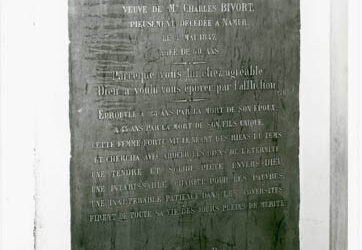 VEUVE DE Mr CHARLES BIVORT.
PIEUSEMENT DÉCÉDÉE A NAMUR,
LE MAI 1847,
AGÉE DE 50 ANS.
Parce que vous lui étiez agréable
Dieu a voulu vous éprouver par l'affliction.
ÉPROUVÉE A 24 ANS PAR LA MORT DE SON ÉPOUX,
A 45 ANS PAR LA MORT DE SON FILS UNIQUE,
CETTE FEMME FORTE VIT LE NÉANT DES BIENS DU TEMS
ET CHERCHA AVEC ARDEUR LES BIENS DE L'ÉTERNITÉ
UNE TENDRE ET SOLIDE PIÉTÉ ENVERS DIEU,
UNE INTARISSABLE CHARITÉ POUR LES PAUVRES,
UNE INALTÉRABLE PATIENCE DANS LES ADVERSITÉS
FIRENT DE TOUTE SA VIE DES JOURS PLEINS DE MÉRITE